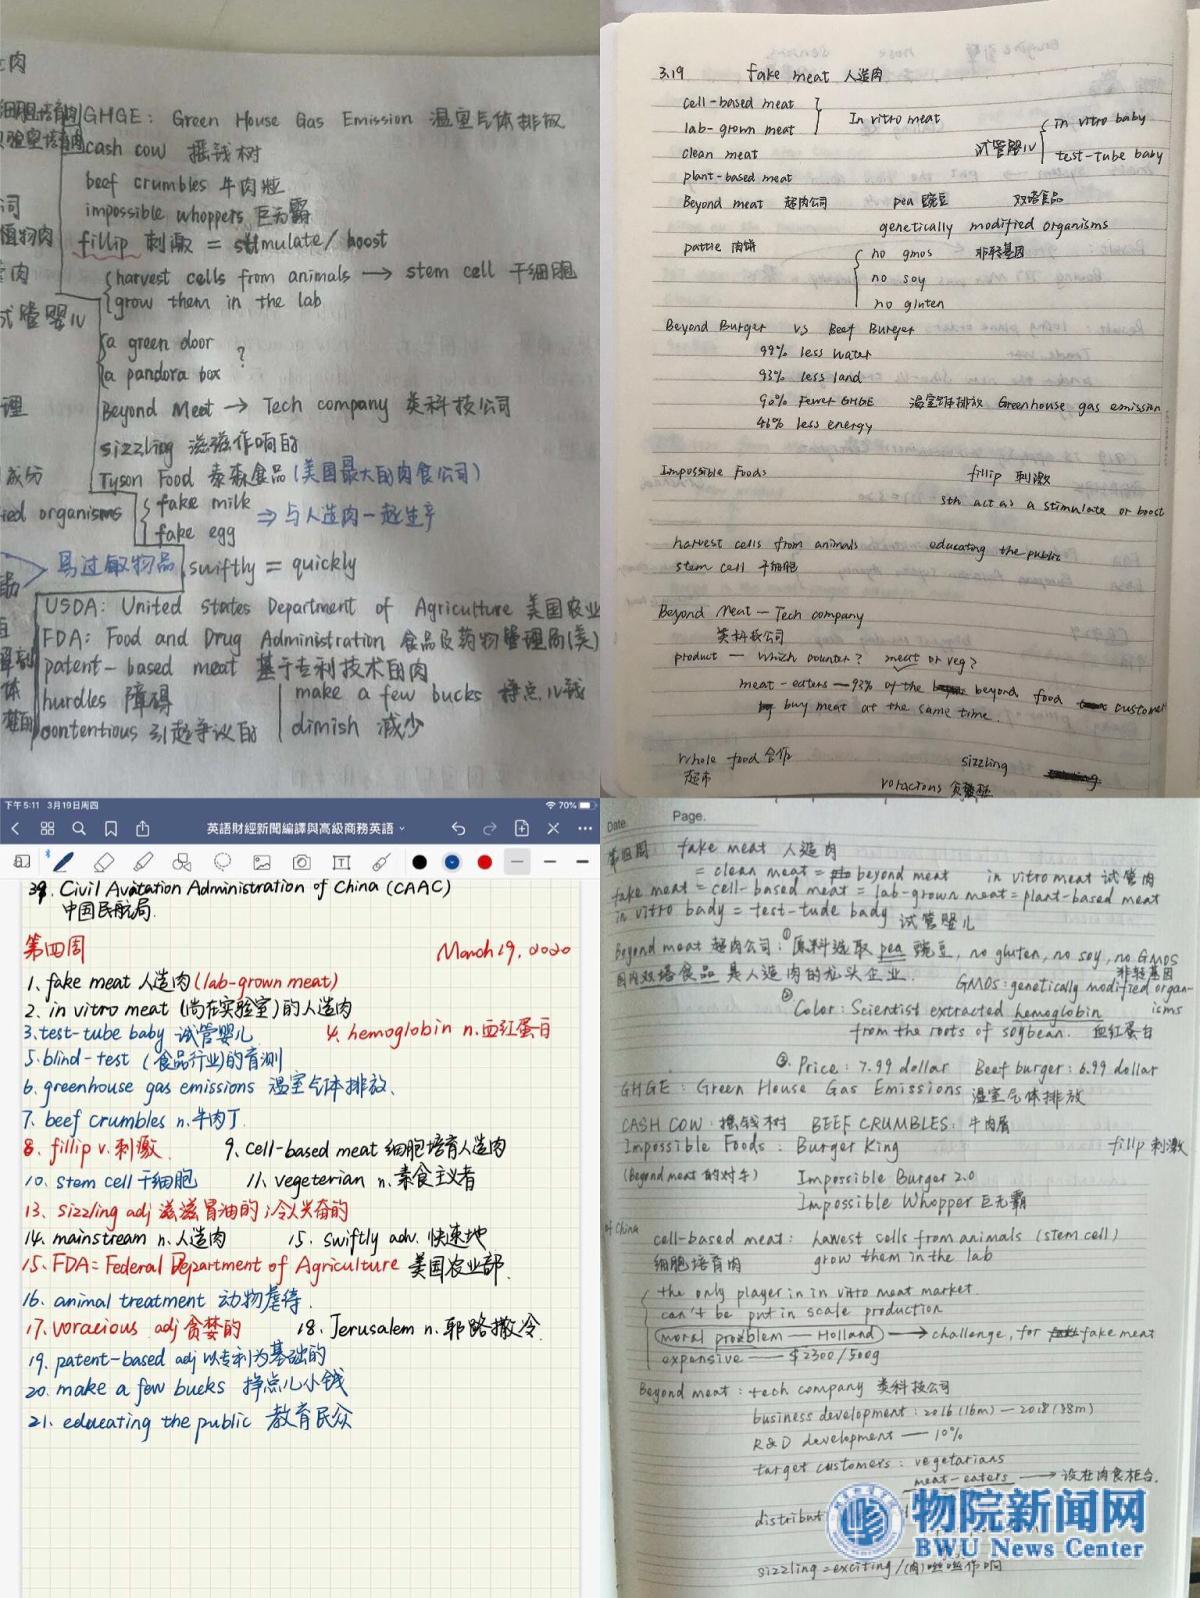 肉
细胞培育肉
GHGE: Green House Gas Emission 温室气体排放
实验室培育肉
cash cow 摇钱树
beef crumbles 牛肉粒
impossible whoppers 巨无霸
词
植物肉
fillip 刺激 = stimulate/boost
肉
harvest cells from animals → stem cell 干细胞
grow them in the lab
试管婴儿
a green door
a pandora box ?
理
Beyond Meat → Tech company 类科技公司
sizzling 滋滋作响的
成分
Tyson Food 泰森食品(美国最大的肉食公司)
ied organisms
fake milk
fake egg
⇒ 与人造肉一起生产
易过敏物品
swiftly = quickly
USDA: United States Department of Agriculture 美国农业
FDA: Food and Drug Administration 食品及药物管理局(美)
patent-based meat 基于专利技术的肉
体
hurdles 障碍
make a few bucks 挣点儿钱
contentious 引起争议的
dimish 减少
3.19 fake meat 人造肉
cell-based meat
lab-grown meat
In vitro meat
clean meat
试管婴儿
in vitro baby
test-tube baby
plant-based meat
Beyond meat 超肉公司 pea 豌豆 双塔食品
genetically modified organisms
pattie 肉饼
no gmos 非转基因
no soy
no gluten
Beyond Burger vs Beef Burger
99% less water
93% less land
90% fewer GHGE 温室气体排放 Greenhouse gas emission
46% less energy
Impossible Foods fillip 刺激
sth act as a stimulate or boost
harvest cells from animals educating the public
stem cell 干细胞
Beyond Meat — Tech company
类科技公司
product — which counter? meat or veg?
meat-eaters — 93% of the beyond food customer
buy meat at the same time.
Whole food 合作
超市
sizzling
voracious 贪婪
下午5:11 3月19日周四 70%
英語財經新聞編譯與高級商務英語
39. Civil Avatation Administration of China (CAAC)
中国民航局.
第四周 March 19, 2020
1. fake meat 人造肉(lab-grown meat)
2. in vitro meat (尚在实验室)的人造肉
3. test-tube baby 试管婴儿 4. hemoglobin n.血红蛋白
5. blind-test (食品行业)的盲测
6. greenhouse gas emissions 温室气体排放、
7. beef crumbles n.牛肉丁
8. fillip v.刺激 9. cell-based meat 细胞培育人造肉
10. stem cell 干细胞 11. vegeterian n.素食主义者
13. sizzling adj 滋滋冒油的;令人兴奋的
14. mainstream n.人造肉 15. swiftly adv. 快速地
15. FDA = Federal Department of Agriculture 美国农业部.
16. animal treatment 动物虐待.
17. voracious adj 贪婪的 18. Jerusalem n.耶路撒冷.
19. patent-based adj 以专利为基础的
20. make a few bucks 挣点儿小钱
21. educating the public 教育民众
Date. Page.
第四周 fake meat 人造肉
= clean meat = beyond meat in vitro meat 试管肉
fake meat = cell-based meat = lab-grown meat = plant-based meat
in vitro bady = test-tude bady 试管婴儿
Beyond meat 超肉公司: ①原料选取 pea 豌豆, no gluten, no soy, no GMOS
国内双塔食品 是人造肉的龙头企业. 非转基因
GMOS: genetically modified organ-
isms
②Color: Scientist extracted hemoglobin
from the roots of soybean. 血红蛋白
③Price: 7.99 dollar Beef burger: 6.99 dollar
GHGE: Green House Gas Emissions 温室气体排放
CASH COW: 摇钱树 BEEF CRUMBLES: 牛肉屑
Impossible Foods: Burger King fillp 刺激
(Beyond meat 的对手) Impossible Burger 2.0
Impossible Whopper 巨无霸
of China
cell-based meat: hawest cells from animals (stem cell)
细胞培育肉 grow them in the lab
the only player in in vitro meat market.
can't be put in scale production
moral problem — Holland → challenge, for fake meat
expensive — $2300/500g
Beyond meat: tech company 类科技公司
business development: 2016 (16m) — 2018 (88m)
R&D development — 10%
target customers: vegetarians
meat-eaters → 设在肉食柜台.
distribut
物院新闻网
BWU News Center
sizzling = exciting/(肉)滋滋作响